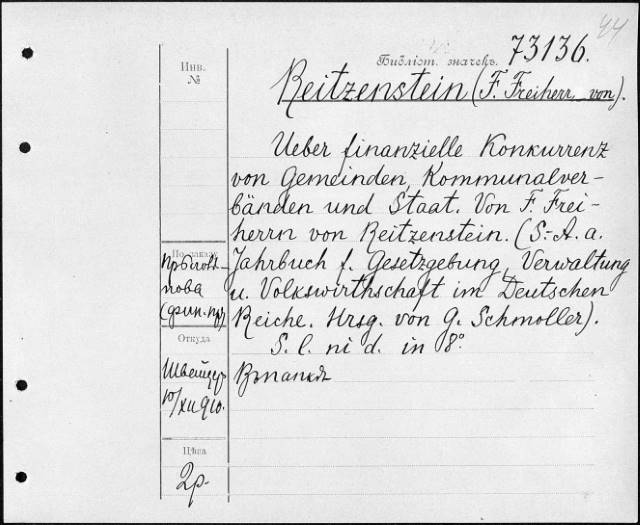 44
Библіот. значекъ. 73136.
Инв.
№
Reitzenstein (F. Freiherr von).
Ueber finanzielle Konkurrenz
von Gemeinden, Kommunalver-
bänden und Staat. Von F. Frei-
herrn von Reitzenstein. (S.-A. a.
По заказу
Jahrbuch f. Gesetzgebung, Verwaltung
u. Volkswirthschaft im Deutschen
(фин. пр)
Reiche. Hrsg. von G. Schmoller).
Откуда
S. l. ni d. in 8°.
Швейцер
10/XII 910.
Цѣна
2р.